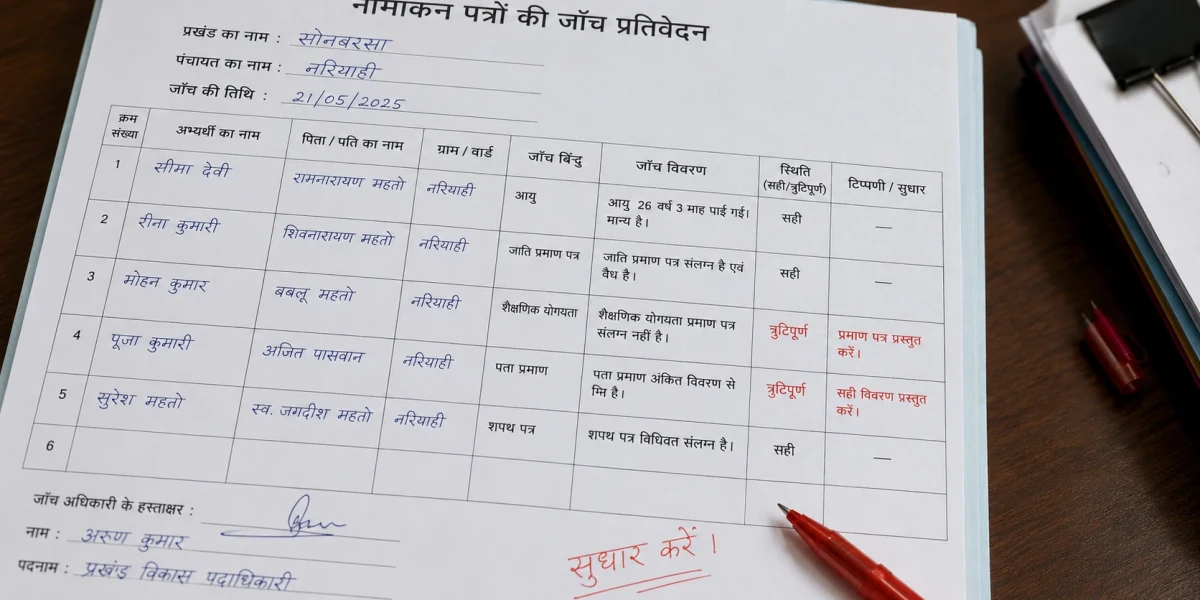 नामांकन पत्रों की जाँच प्रतिवेदन
प्रखंड का नाम : सोनबरसा
पंचायत का नाम : नरियाही
जाँच की तिथि : 21/05/2025
क्रम संख्या | अभ्यर्थी का नाम | पिता / पति का नाम | ग्राम / वार्ड | जाँच बिंदु | जाँच विवरण | स्थिति (सही/त्रुटिपूर्ण) | टिप्पणी / सुधार
1 | सीमा देवी | रामनारायण महतो | नरियाही | आयु | आयु 26 वर्ष 3 माह पाई गई। मान्य है। | सही | —
2 | रीना कुमारी | शिवनारायण महतो | नरियाही | जाति प्रमाण पत्र | जाति प्रमाण पत्र संलग्न है एवं वैध है। | सही | —
3 | मोहन कुमार | बबलू महतो | नरियाही | शैक्षणिक योगयता | शैक्षणिक योगयता प्रमाण पत्र संलग्न नहीं है। | त्रुटिपूर्ण | प्रमाण पत्र प्रस्तुत करें।
4 | पूजा कुमारी | अजित पासवान | नरियाही | पता प्रमाण | पता प्रमाण अंकित विवरण से है। | त्रुटिपूर्ण | सही विवरण प्रस्तुत करें।
5 | सुरेश महतो | स्व. जगदीश महतो | नरियाही | शपथ पत्र | शपथ पत्र विधिवत संलग्न है। | सही | —
6
जाँच अधिकारी के हस्ताक्षर :
नाम : अरुण कुमार
पदनाम : प्रखंड विकास पदाधिकारी
सुधार करें।